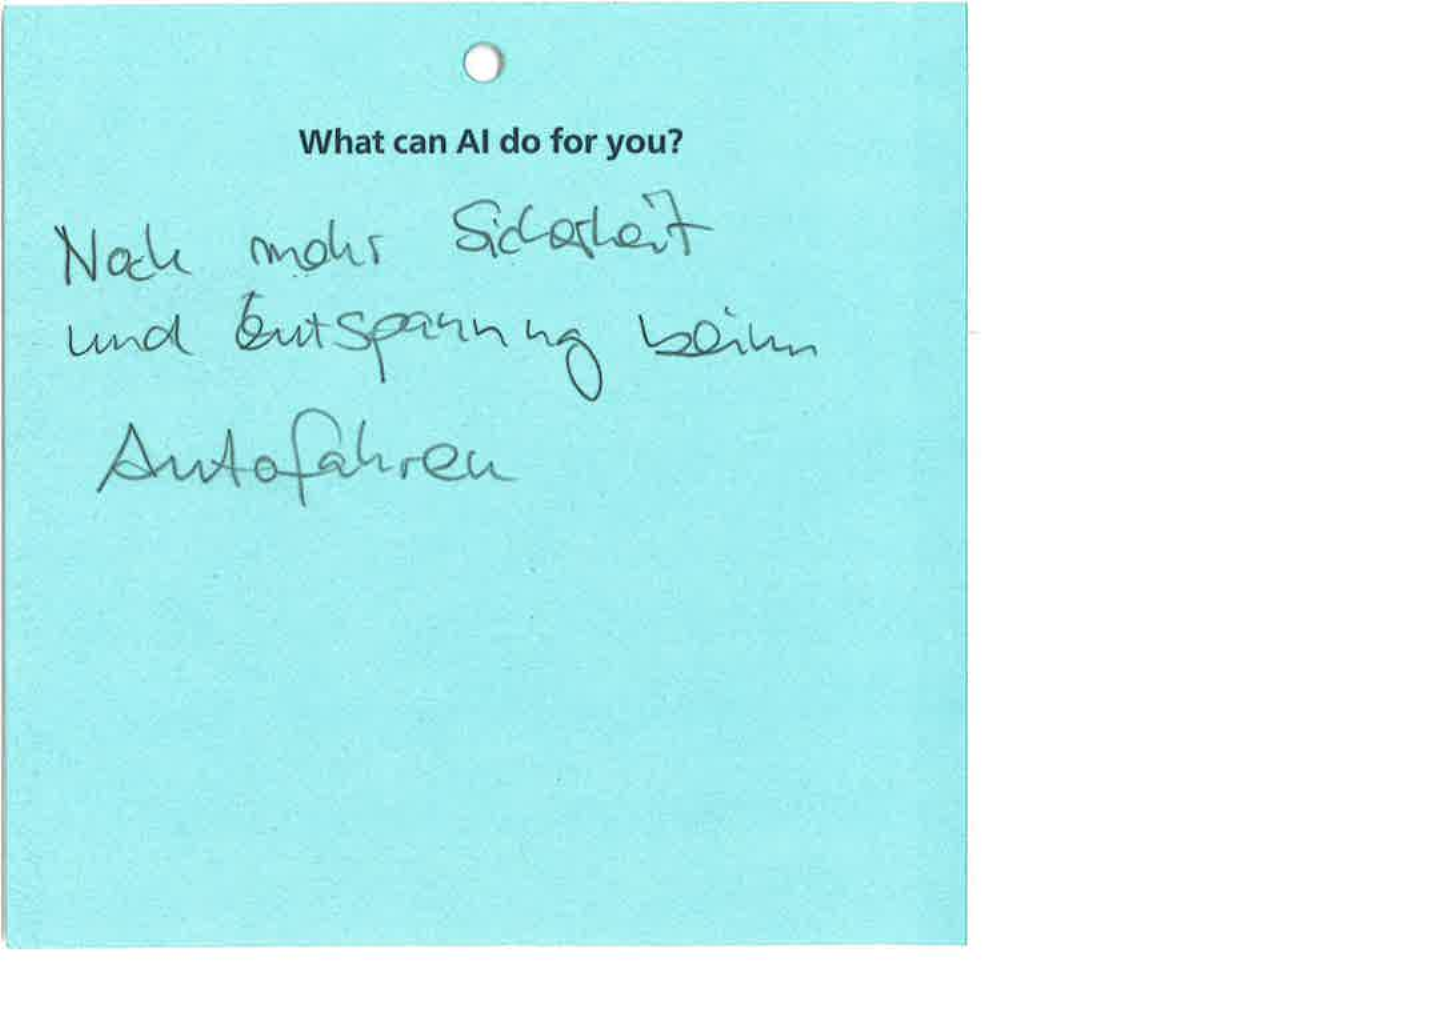 What can AI do for you?
Noch mehr Sicherheit
und Entspannung beim
Autofahren